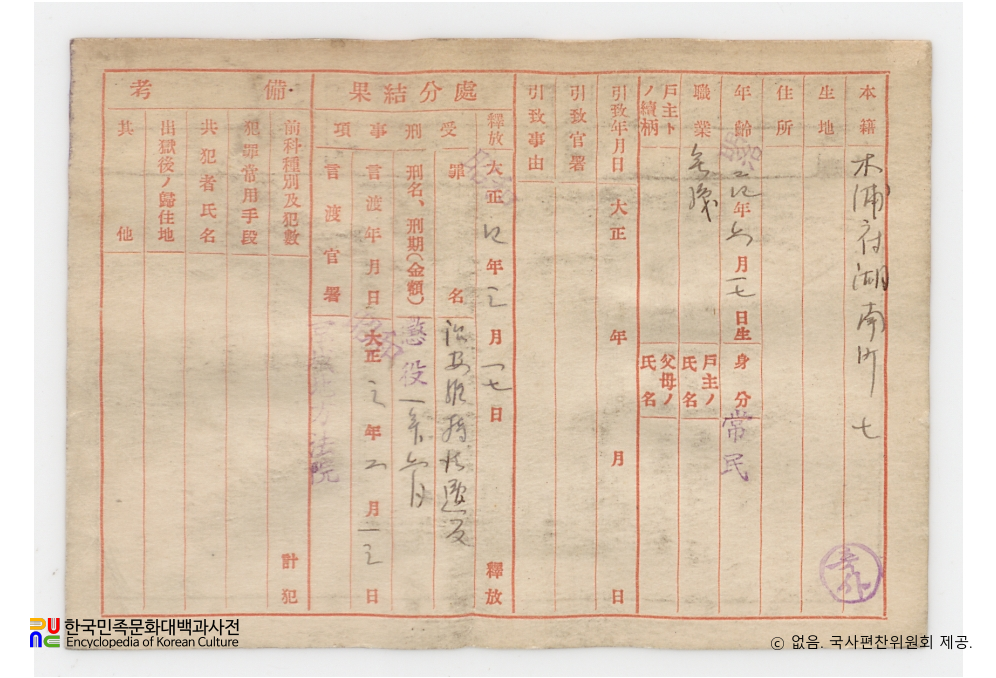 本籍 木浦府湖南町 七
生地
住所
年齡 年 六月一七日生 身分 常民
職業 無職 戶主ノ氏名
戶主トノ續柄 父母ノ氏名
引致年月日 大正 年 月 日
引致官署
引致事由
處分結果
釋放 大正 年三月一七日 釋放
受刑事項
罪名 治安維持法違反
刑名、刑期(金額) 懲役一年六月
言渡年月日 大正 三年 二月一三日
言渡官署 地方法院
備考
前科種別及犯數 計 犯
犯罪常用手段
共犯者氏名
出獄後ノ歸住地
其他
한국민족문화대백과사전
Encyclopedia of Korean Culture
ⓒ 없음. 국사편찬위원회 제공.